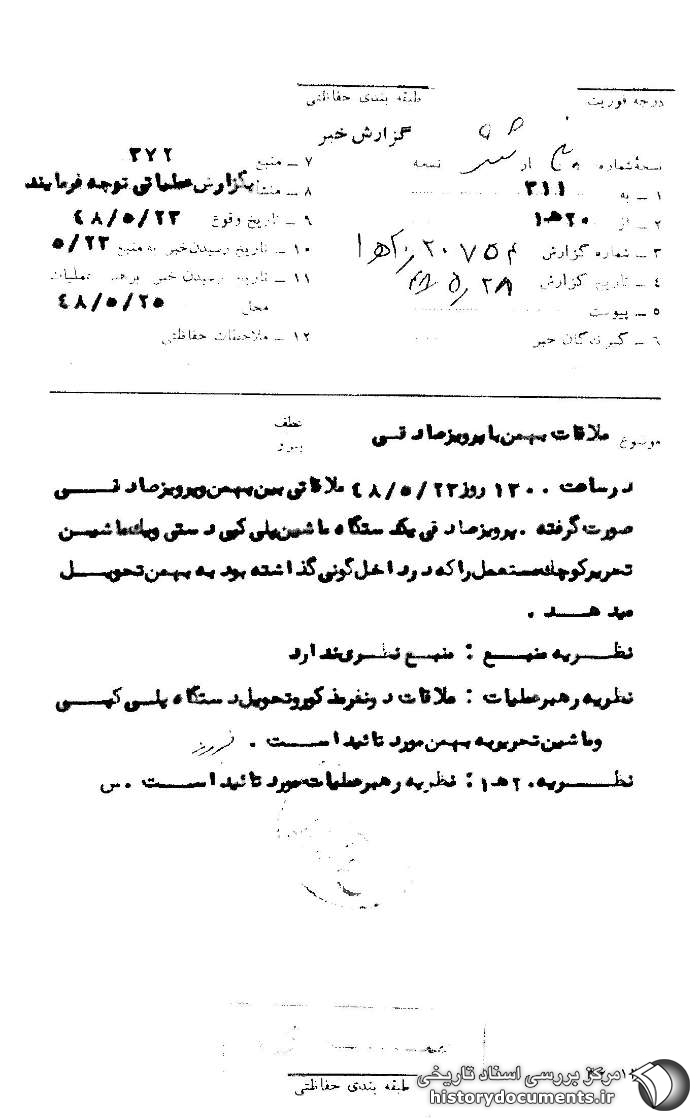 درجه فوریت
طبقه بندی حفاظتی
گزارش خبر
نسخه شماره از نسخه
۱ ـ به ۳۱۱
۲ ـ از ۲۰ ه‍ ۱
۳ ـ شماره گزارش
۴ ـ تاریخ گزارش ۴۸ ر ۵ ر ۲۸
۵ ـ پیوست
۶ ـ گیرندگان خبر
۷ ـ منبع ۳۷۲
۸ ـ منشأ بگزارش عملیاتی توجه فرمایند
۹ ـ تاریخ وقوع ۴۸/۵/۲۳
۱۰ ـ تاریخ رسیدن خبر به منبع ۵/۲۳
۱۱ ـ تاریخ رسیدن خبر برهبر عملیات
محل ۴۸/۵/۲۵
۱۲ ـ ملاحظات حفاظتی
موضوع ملاقات بهمن با پرویز صادقی
عطف
پیرو
در ساعت ۱۳۰۰ روز ۴۸/۵/۲۳ ملاقاتی بین بهمن و پرویز صادقی
صورت گرفته . پرویز صادقی یک دستگاه ماشین پلی کپی دستی و یک ماشین
تحریر کوچک مستعمل را که در داخل گونی گذاشته بود به بهمن تحویل
میدهد .
نظریه منبع : منبع نظری ندارد
نظریه رهبر عملیات : ملاقات دونفر مذکور و تحویل دستگاه پلی کپی
و ماشین تحریر به بهمن مورد تائید است .
نظریه ۲۰ ه‍ ۱ : نظریه رهبر عملیات مورد تائید است . س
طبقه بندی حفاظتی
مرکز بررسی اسناد تاریخی
historydocuments.ir